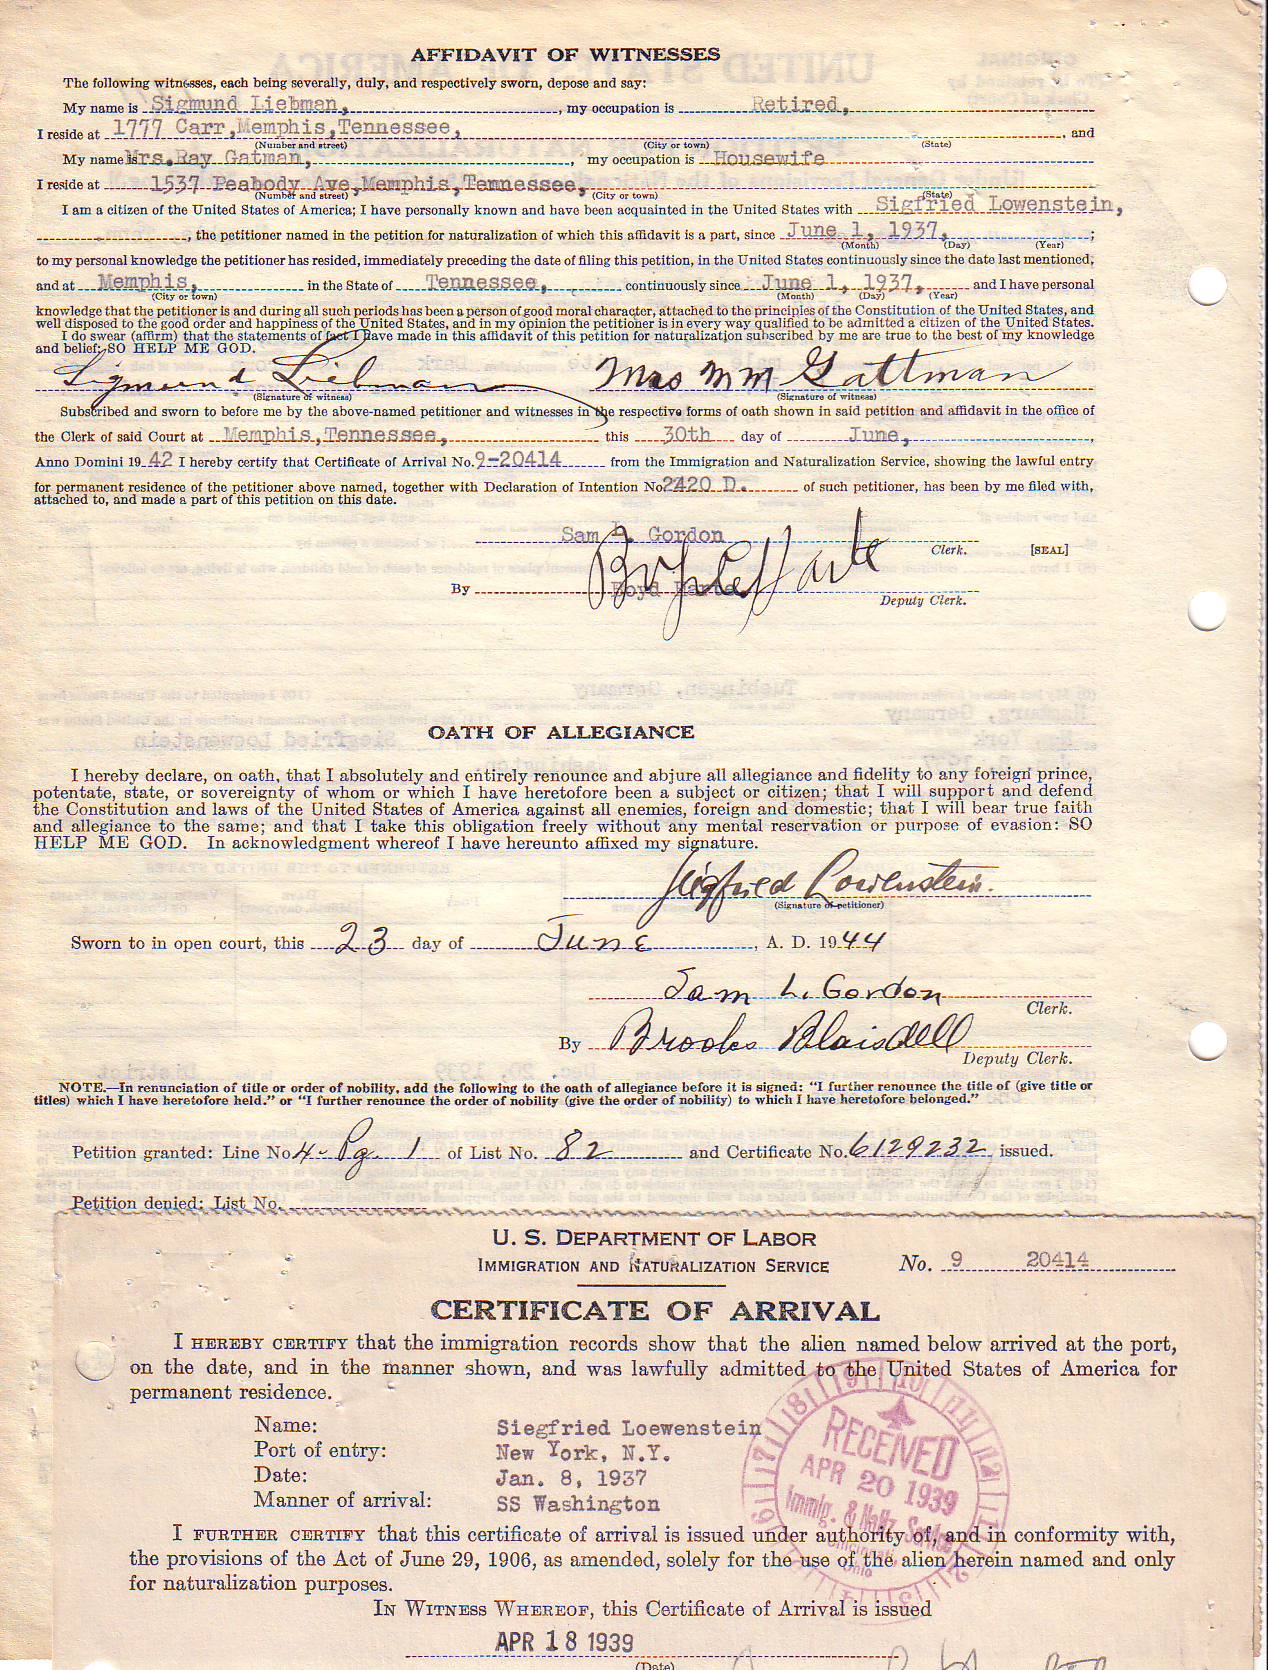 AFFIDAVIT OF WITNESSES
The following witnesses, each being severally, duly, and respectively sworn, depose and say:
My name is Sigmund Liebman, my occupation is Retired,
I reside at 1777 Carr, Memphis, Tennessee, and
(Number and street) (City or town) (State)
My name is Mrs. Ray Gatman, my occupation is Housewife
I reside at 1537 Peabody Ave, Memphis, Tennessee,
(Number and street) (City or town) (State)
I am a citizen of the United States of America; I have personally known and have been acquainted in the United States with Sigfried Lowenstein,
, the petitioner named in the petition for naturalization of which this affidavit is a part, since June 1, 1937, ;
(Month) (Day) (Year)
to my personal knowledge the petitioner has resided, immediately preceding the date of filing this petition, in the United States continuously since the date last mentioned,
and at Memphis, in the State of Tennessee, continuously since June 1, 1937, and I have personal
(City or town) (Month) (Day) (Year)
knowledge that the petitioner is and during all such periods has been a person of good moral character, attached to the principles of the Constitution of the United States, and
well disposed to the good order and happiness of the United States, and in my opinion the petitioner is in every way qualified to be admitted a citizen of the United States.
I do swear (affirm) that the statements of fact I have made in this affidavit of this petition for naturalization subscribed by me are true to the best of my knowledge
and belief: SO HELP ME GOD.
Sigmund Liebman Mrs M M Gattman
(Signature of witness) (Signature of witness)
Subscribed and sworn to before me by the above-named petitioner and witnesses in the respective forms of oath shown in said petition and affidavit in the office of
the Clerk of said Court at Memphis, Tennessee, this 30th day of June,
Anno Domini 1942 I hereby certify that Certificate of Arrival No. 9-20414 from the Immigration and Naturalization Service, showing the lawful entry
for permanent residence of the petitioner above named, together with Declaration of Intention No. 2420 D. of such petitioner, has been by me filed with,
attached to, and made a part of this petition on this date.
Sam L. Gordon
Clerk. [SEAL]
By Boyd Harte
Deputy Clerk.
OATH OF ALLEGIANCE
I hereby declare, on oath, that I absolutely and entirely renounce and abjure all allegiance and fidelity to any foreign prince,
potentate, state, or sovereignty of whom or which I have heretofore been a subject or citizen; that I will support and defend
the Constitution and laws of the United States of America against all enemies, foreign and domestic; that I will bear true faith
and allegiance to the same; and that I take this obligation freely without any mental reservation or purpose of evasion: SO
HELP ME GOD. In acknowledgment whereof I have hereunto affixed my signature.
Siegfried Lowenstein.
(Signature of petitioner)
Sworn to in open court, this 23 day of June, A. D. 1944
Sam L. Gordon
Clerk.
By Brooks Blaisdell
Deputy Clerk.
NOTE.—In renunciation of title or order of nobility, add the following to the oath of allegiance before it is signed: "I further renounce the title of (give title or
titles) which I have heretofore held." or "I further renounce the order of nobility (give the order of nobility) to which I have heretofore belonged."
Petition granted: Line No. 4- Pg 1 of List No. 82 and Certificate No. 6129232 issued.
Petition denied: List No.
U. S. DEPARTMENT OF LABOR
IMMIGRATION AND NATURALIZATION SERVICE No. 9 20414
CERTIFICATE OF ARRIVAL
I HEREBY CERTIFY that the immigration records show that the alien named below arrived at the port,
on the date, and in the manner shown, and was lawfully admitted to the United States of America for
permanent residence.
Name: Siegfried Loewenstein
Port of entry: New York, N.Y.
Date: Jan. 8, 1937
Manner of arrival: SS Washington
RECEIVED
APR 20 1939
Immig. & Natz. Service
Cincinnati
Ohio
I FURTHER CERTIFY that this certificate of arrival is issued under authority of, and in conformity with,
the provisions of the Act of June 29, 1906, as amended, solely for the use of the alien herein named and only
for naturalization purposes.
IN WITNESS WHEREOF, this Certificate of Arrival is issued
APR 18 1939
(Date)